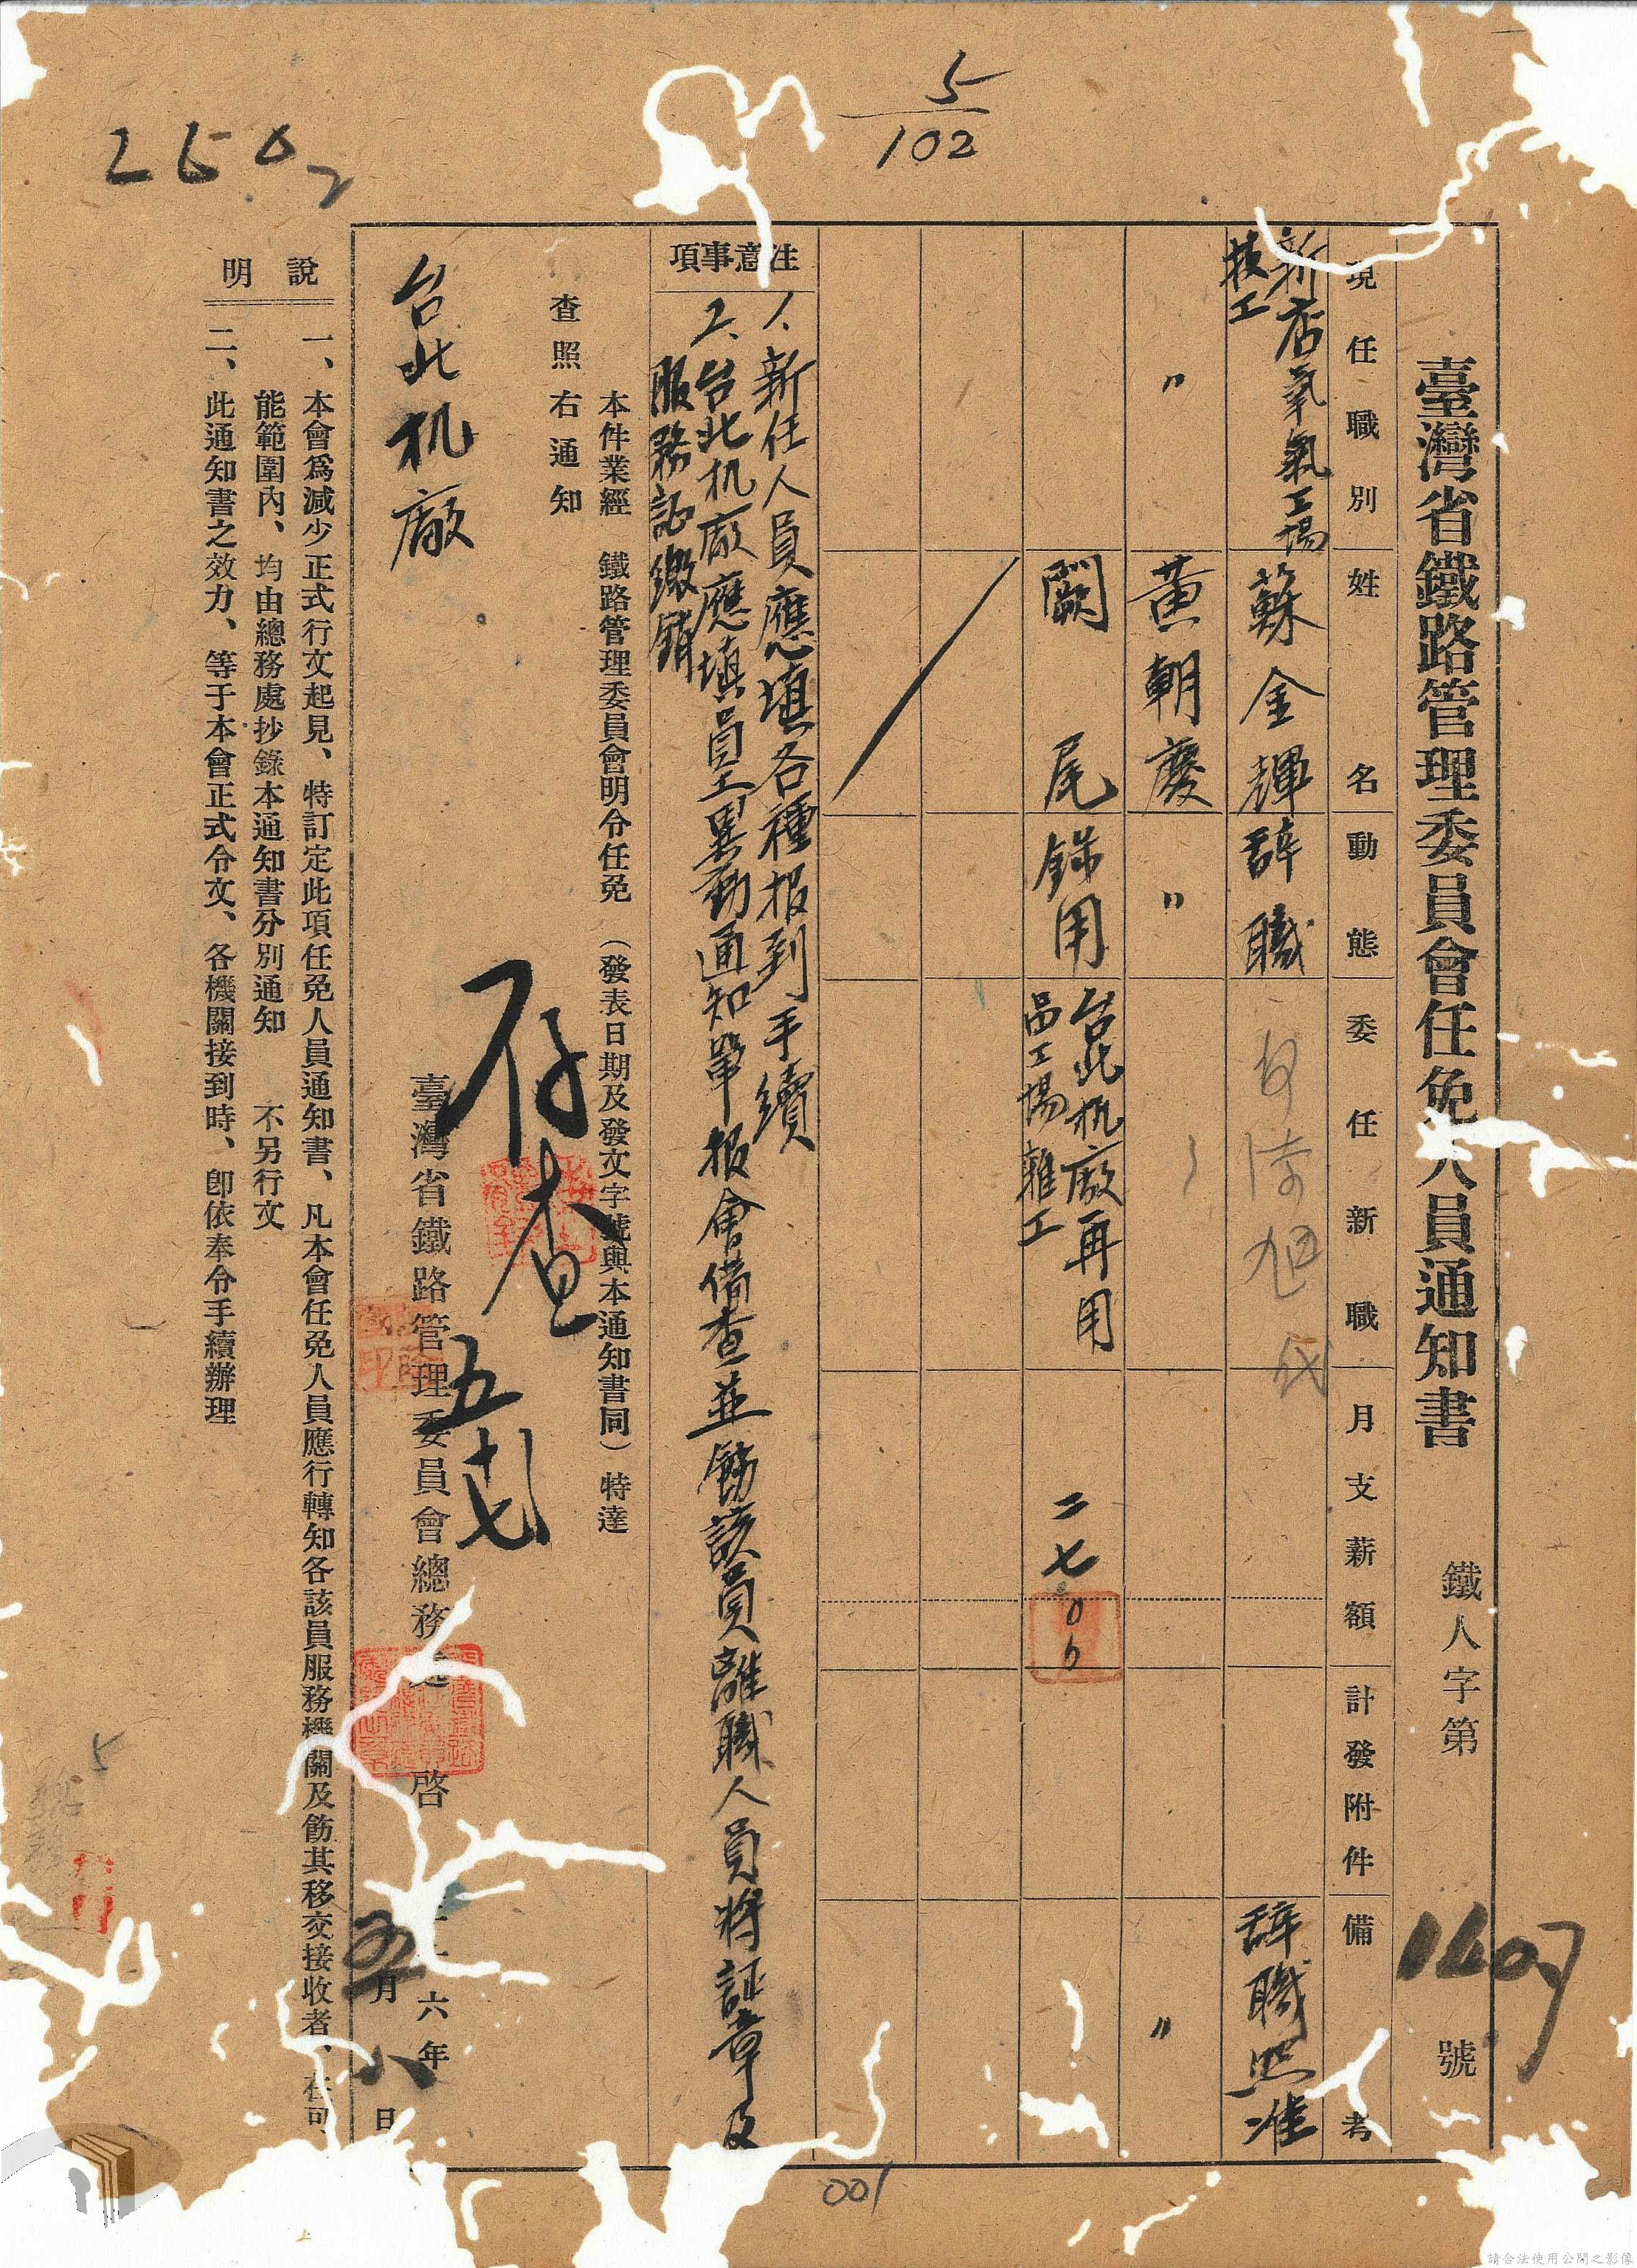 5
102
250
臺灣省鐵路管理委員會任免人員通知書
鐵人字第
號
現任職別
姓名
動態
委任新職
月支薪額
計發附件
備考
新店氧氣工場
技工
蘇金輝
辭職
辭職照准
〃
黃朝慶
〃
〃
闕尾
錄用
台北机廠再用
品工場雜工
二七00
注意事項
1、新任人員應填各種报到手續
2、台北机廠應填員工異動通知單报會備查並飭該員離職人員將証章及
服務証繳銷
本件業經 鐵路管理委員會明令任免 (發表日期及發文字號與本通知書同) 特達
查照右通知
台北机廠
存查
五
臺灣省鐵路管理委員會總務處 啓
六年
五月八日
說明
一、本會爲減少正式行文起見、特訂定此項任免人員通知書、凡本會任免人員應行轉知各該員服務機關及飭其移交接收者、在可
能範圍內、均由總務處抄錄本通知書分別通知 不另行文
二、此通知書之效力、等于本會正式令文、各機關接到時、卽依奉令手續辦理
5
001
請合法使用公開之影像